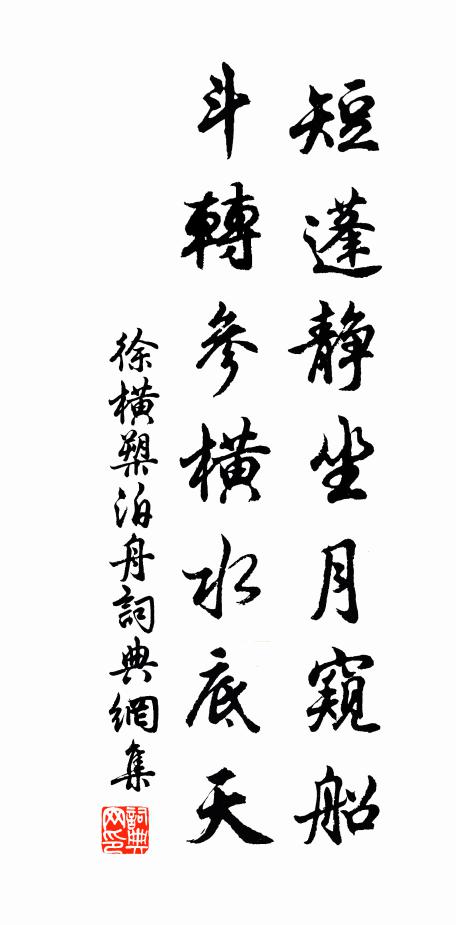 短蓬靜坐月窺船
斗轉參橫水底天
徐橫槊泊舟詞典網集
詞典网印